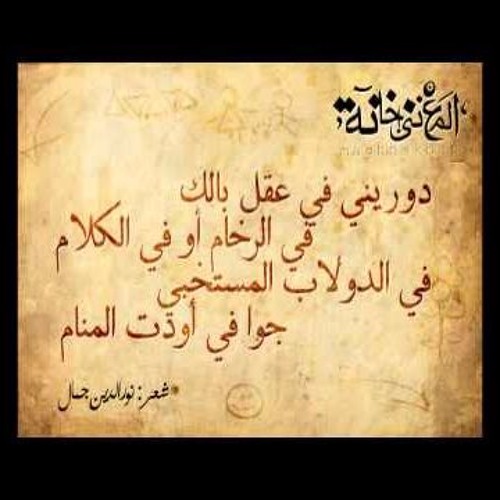 المغنىخانة
دوريني في عقل بالك
في الرخام أو في الكلام
في الدولاب المستخبي
جوا في أودت المنام
شعر: نورالدين جمال